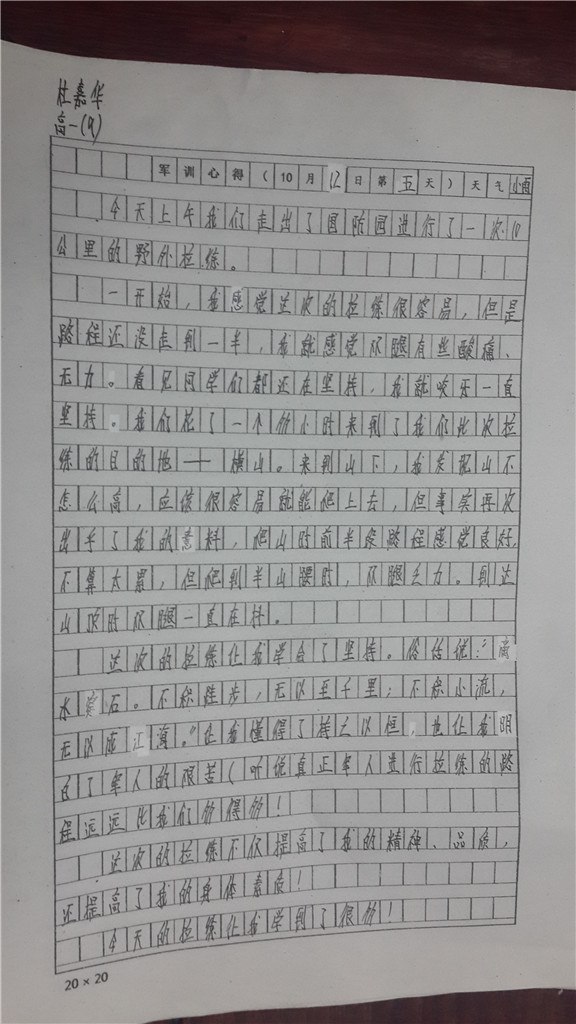 杜嘉华
高一(9)
军训心得(10月12日第五天)天气小雨
今天上午我们走出了国防园进行了一次10
公里的野外拉练。
一开始,我感觉这次的拉练很容易,但是
路程还没走到一半,我就感觉双腿有些酸痛、
无力。看见同学们都还在坚持,我就咬牙一直
坚持。我们花了一个多小时来到了我们此次拉
练的目的地——横山。来到山下,我发现山不
怎么高,应该很容易就能爬上去,但事实再次
出乎了我的意料,爬山时前半段路程感觉良好,
不算太累,但爬到半山腰时,双腿乏力。到达
山顶时双腿一直在抖。
这次的拉练让我学会了坚持。俗话说:"滴
水穿石。不积跬步,无以至千里;不积小流,
无以成江海。"让我懂得了持之以恒,也让我明
白了军人的艰苦(听说真正军人进行拉练的路
程远远比我们多得多!
这次的拉练不仅提高了我的精神、品质,
还提高了我的身体素质!
今天的拉练让我学到了很多!
20×20